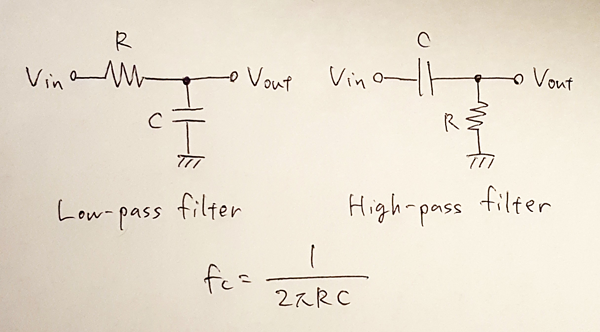 R
Vin
Vout
C
Low-pass filter
C
Vin
Vout
R
High-pass filter
fc = 1 / 2πRC